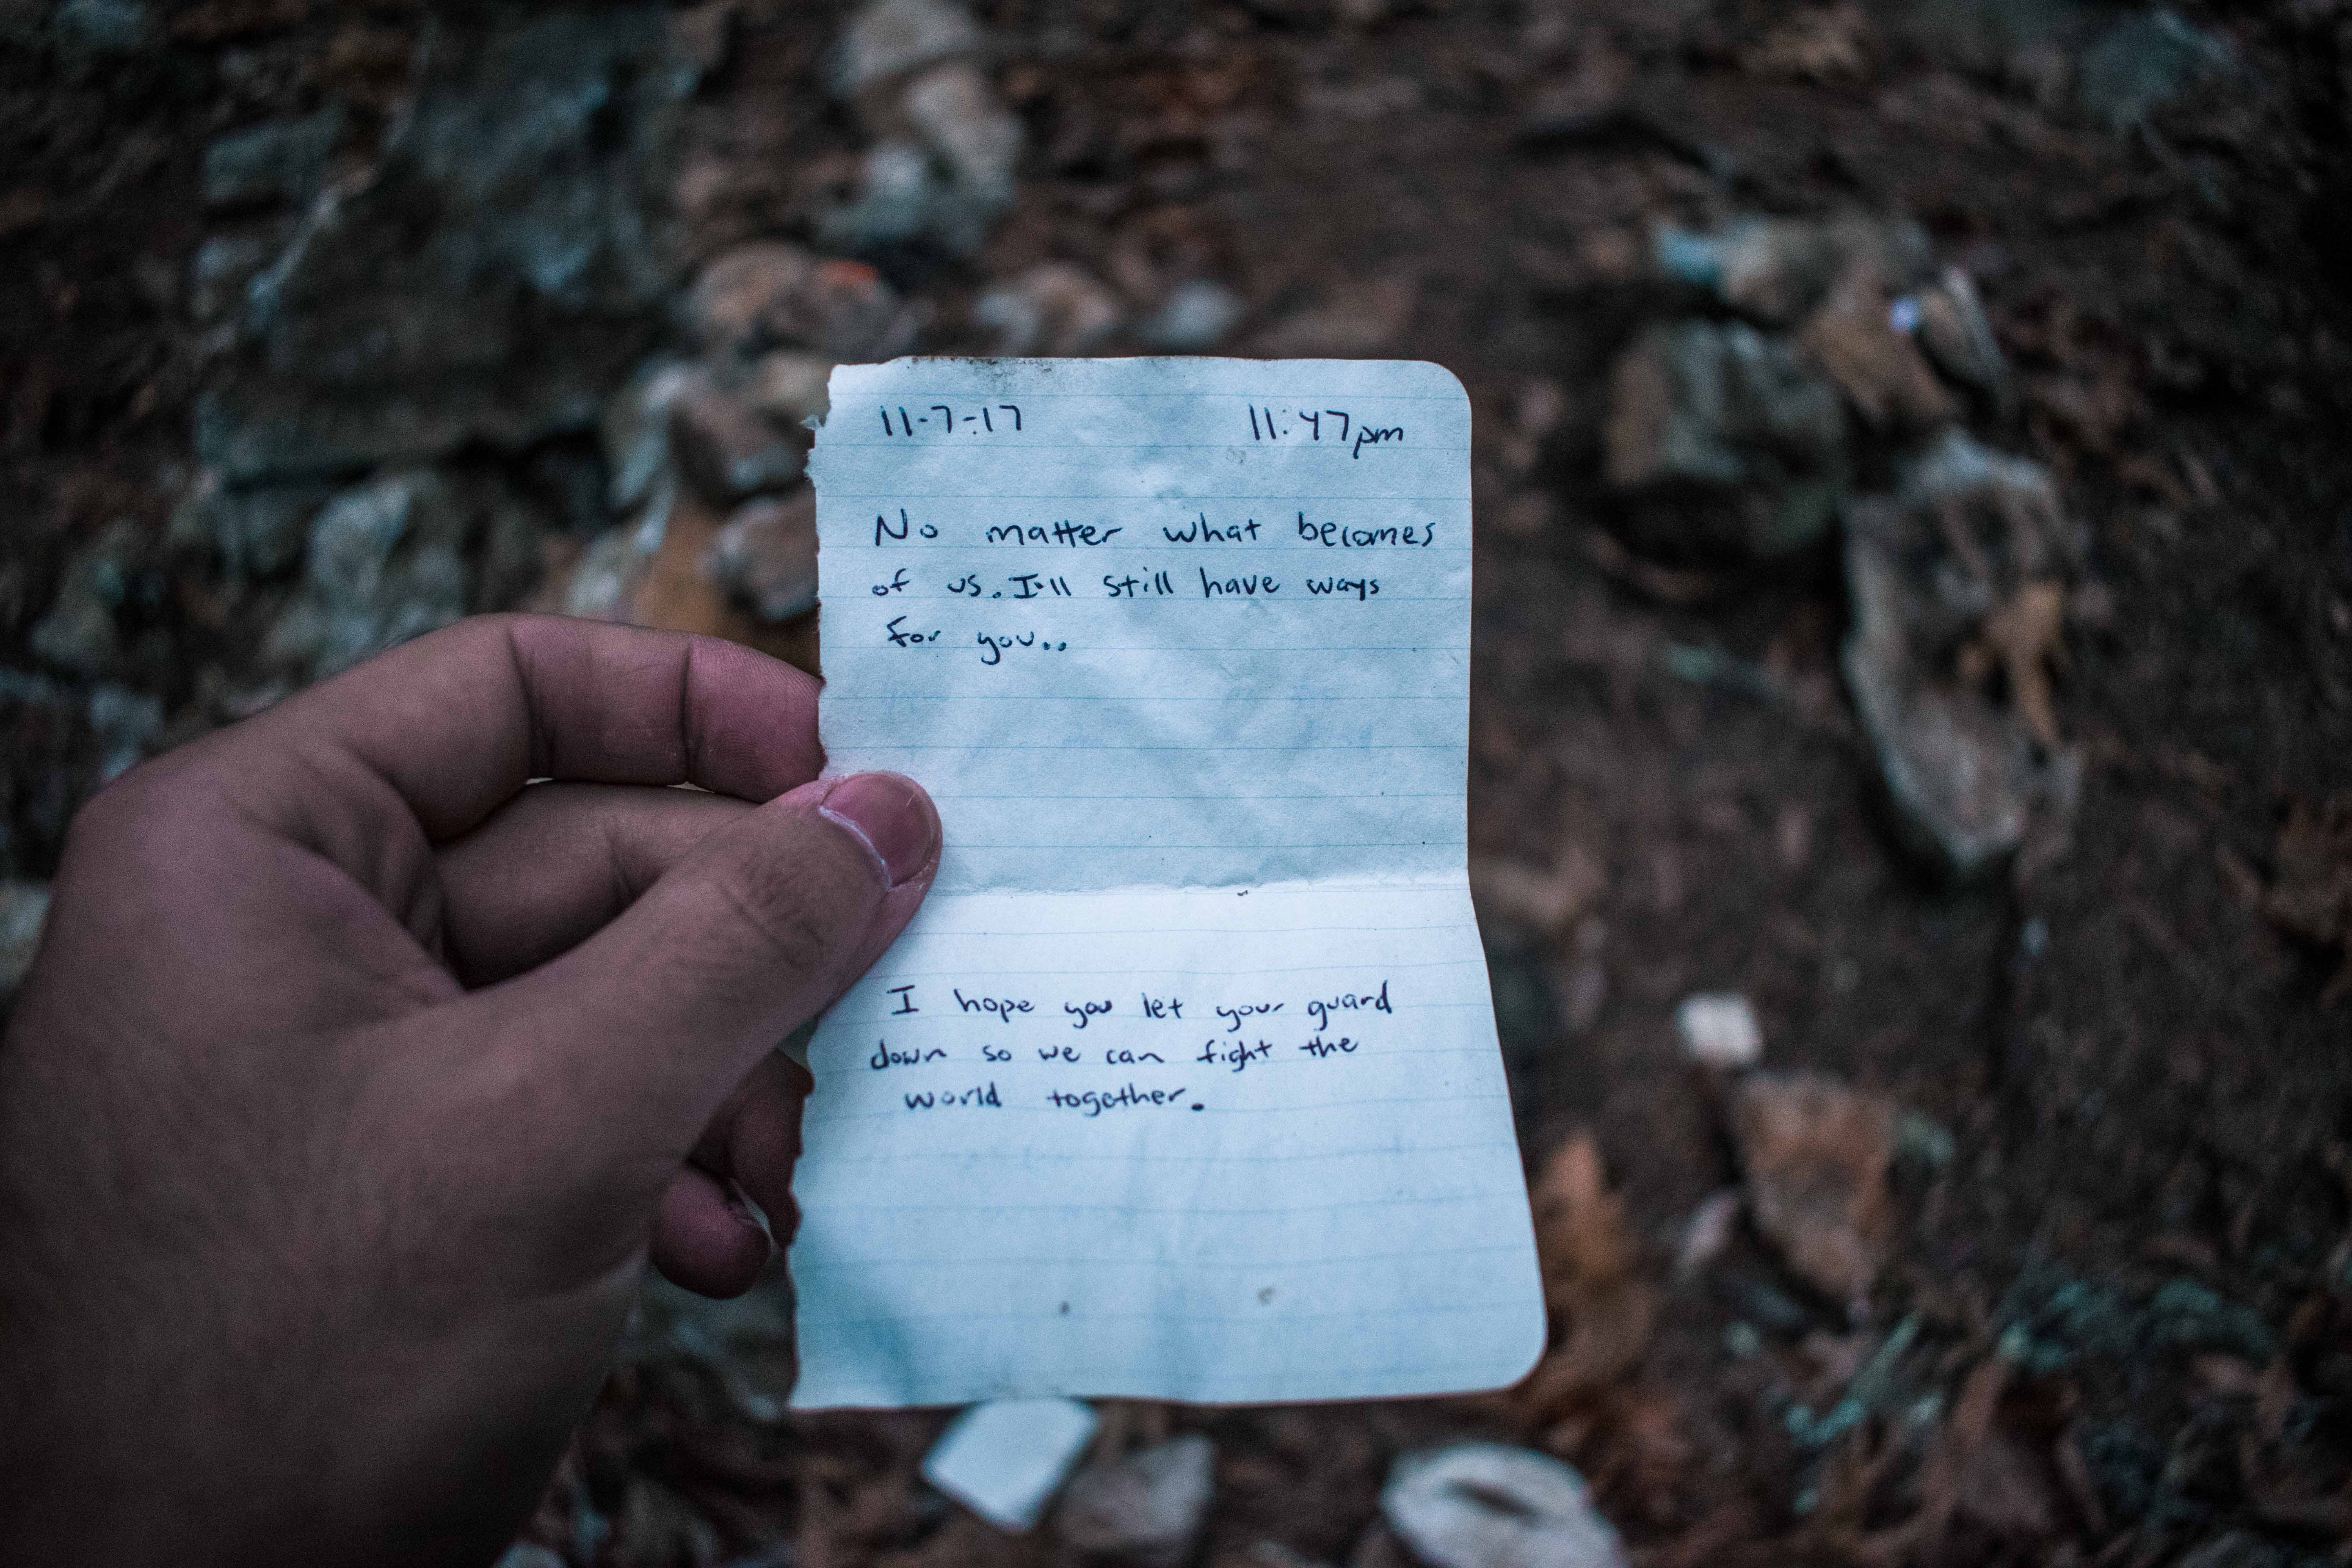 11-7-17 11:47pm
No matter what becomes
of us. I'll still have ways
for you..
I hope you let your guard
down so we can fight the
world together.